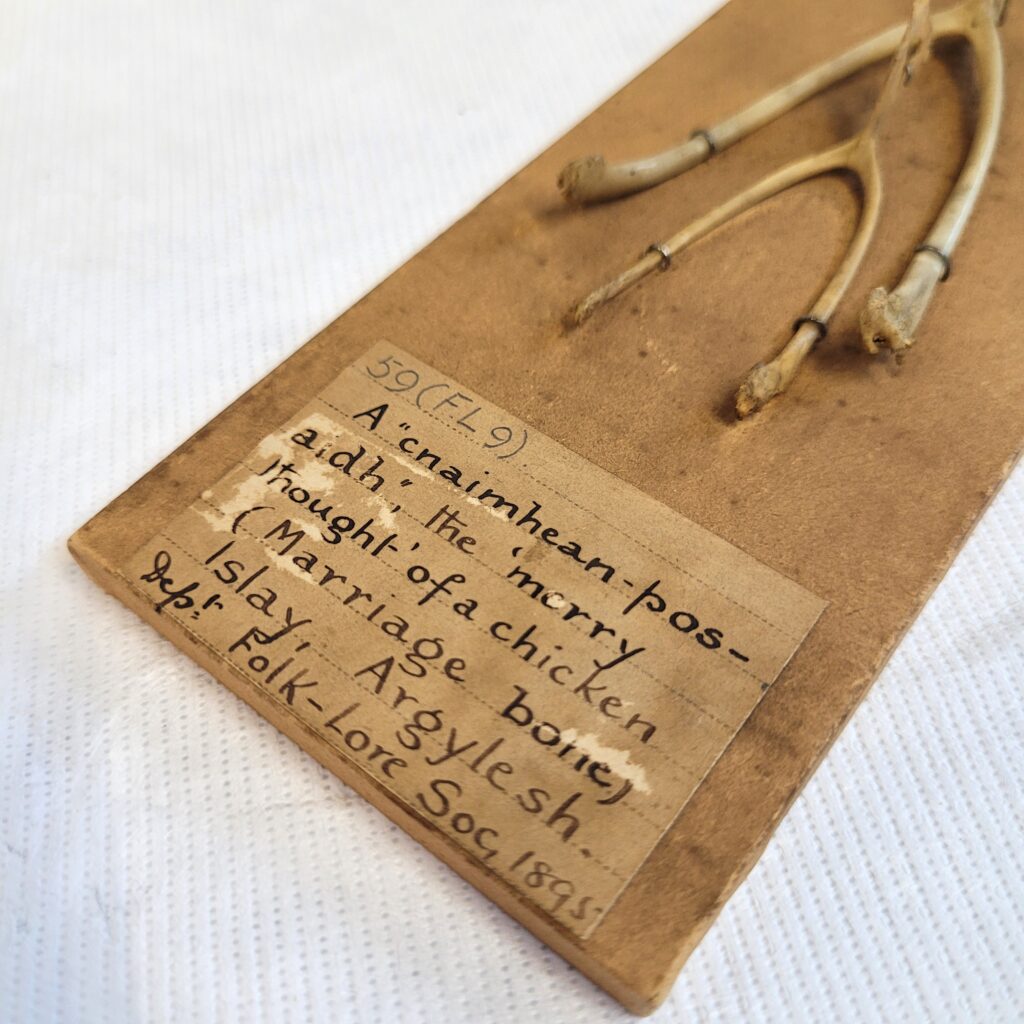 59(FL9).
A "cnaimhean-pos-
aidh", the 'merry
thought' of a chicken
(Marriage bone)
Islay, Argylesh.
Depr. Folk-Lore Soc, 1895.